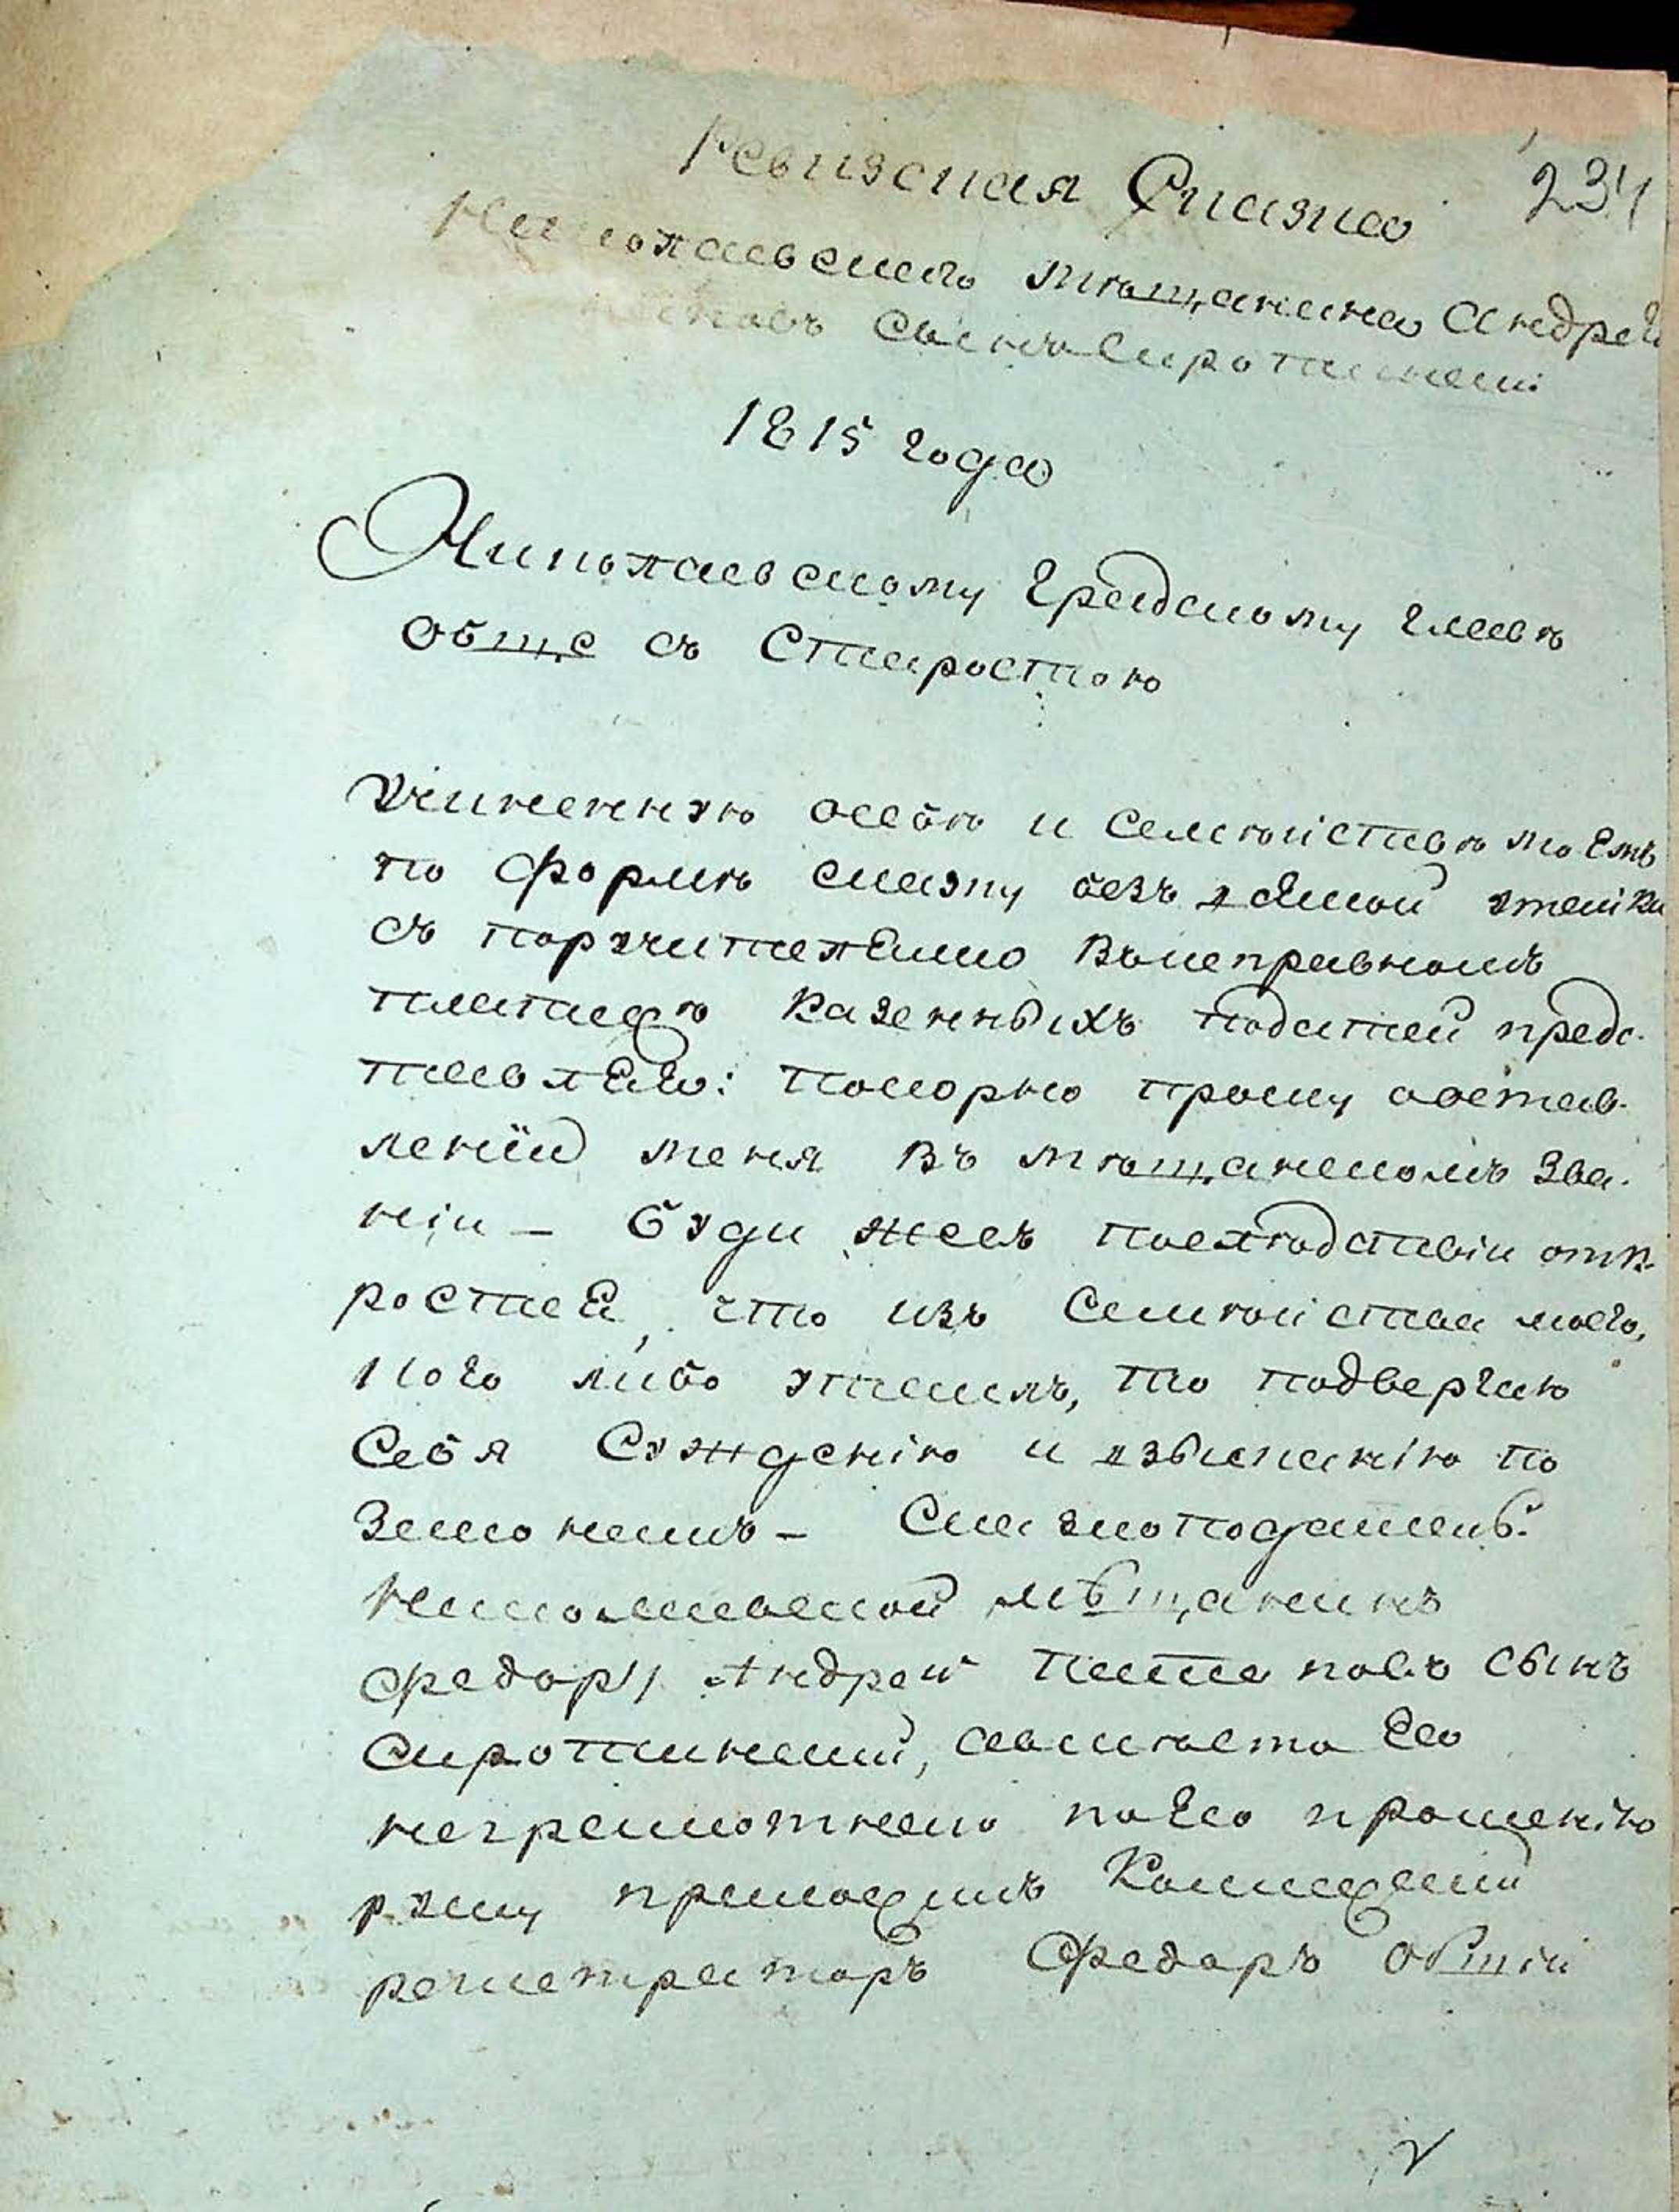 Ревизская Сказка
234
Николаевскаго мѣщанина Андрея
сына Сиротински
1815 года
Николаевскому Градскому главѣ
обще съ Старостою
Учиненную осебѣ и семѣйствѣ моемъ
по формѣ сказку безъ всякой утайки
съ поручителємъ въисправномъ
платежѣ казенныхъ податей предс-
тавляю: покорно прошу оостав-
ленїи меня въ мѣщанскомъ зва-
нiи – буди жеєъ послѣдствiи отк-
роется, что изъ семѣйства моего,
кого либо утаилъ, то подвергаю
себя сужденiю и взысканiю по
законамъ – Сказкоподатель:
николаевской мѣщанинъ
Андрей сынъ
Сиротинский, авмѣсто его
неграмотнаго поего прошенiю
руку приложилъ Коллежский
регистраторъ Федоръ